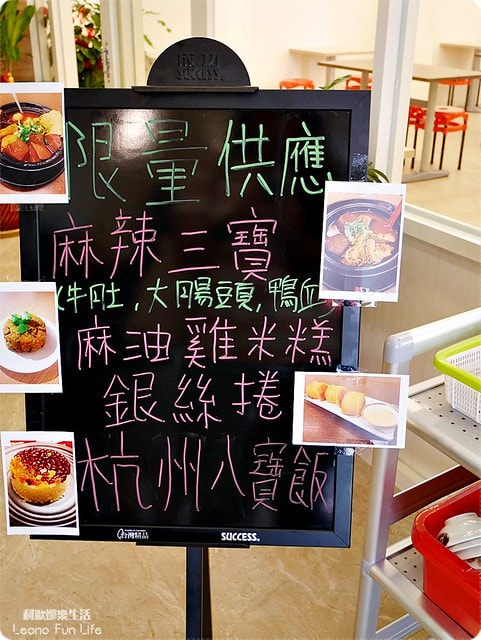 SUCCESS.
限量供應
麻辣三寶
(牛肚,大腸頭,鴨血)
麻油雞米糕
銀絲捲
杭州八寶飯
台灣精品
SUCCESS.
利歐娜樂生活
Leono Fun Life